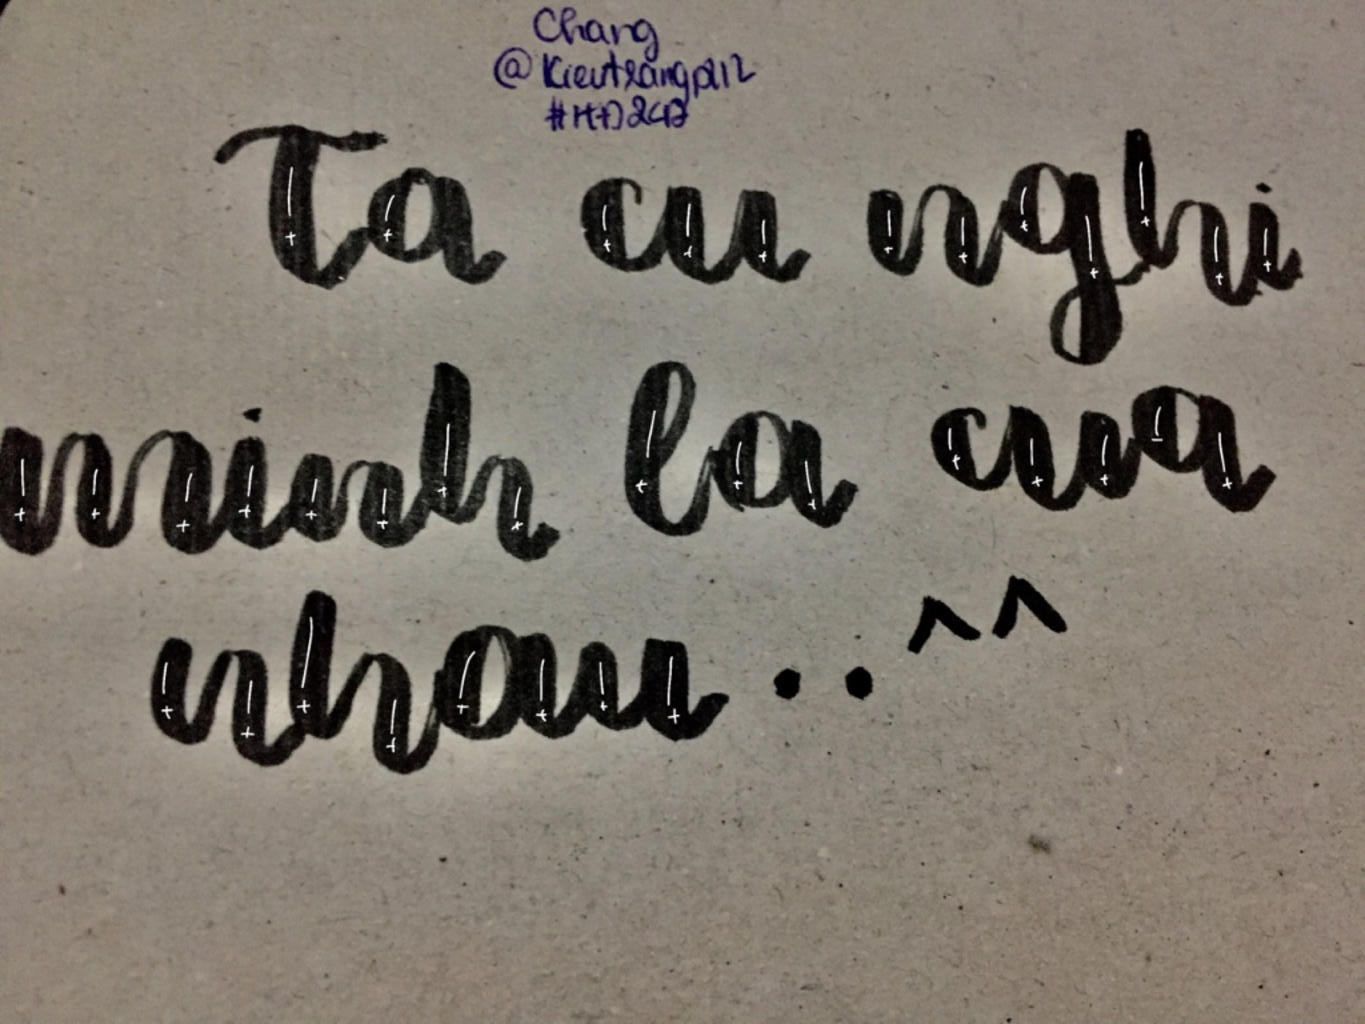 Chang
@Kieutrangpd12
#HD2CD
Ta cu nghi
minh la cua
nhau..^^